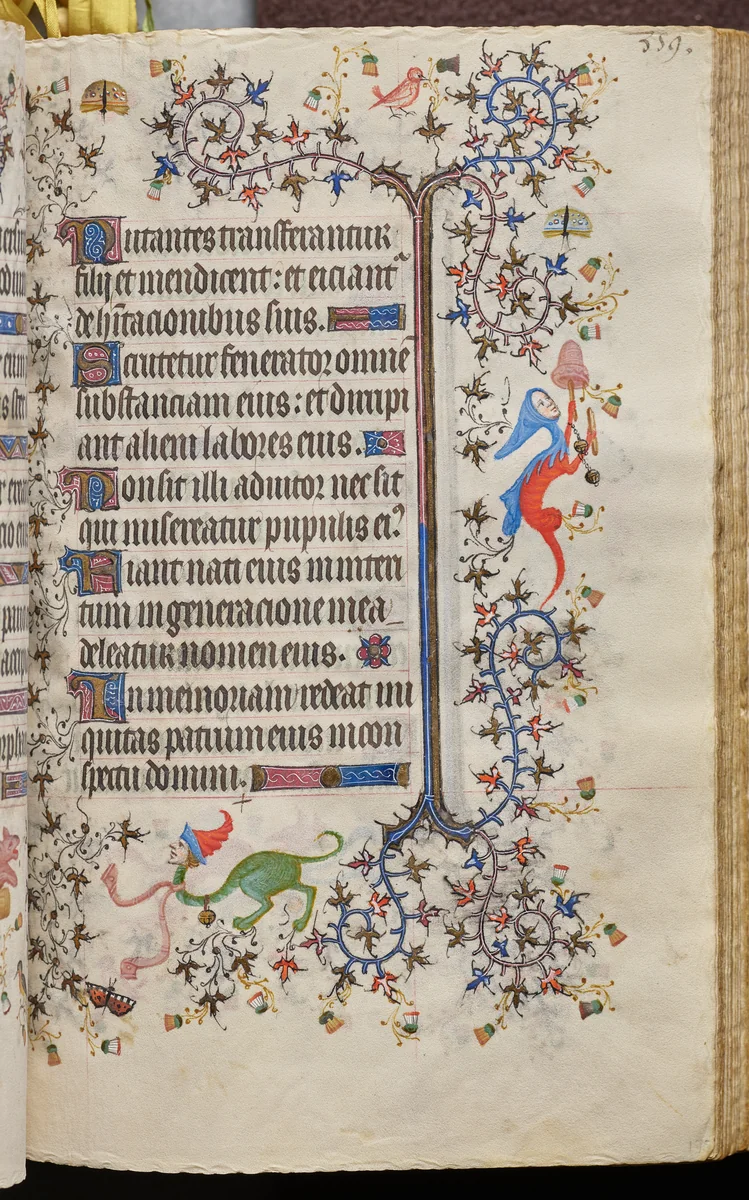 339.
Nutantes transferantur
filij et mendicent: et eiciant̄
de hītacionibus suis.
Scrutetur fenerator omnē
substanciam eius: et diripi
ant alieni labores eius.
Non sit illi adiutor nec sit
qui misereatur pupillis ei9
Fiant nati eius in interi
tum in generacione mea
deleatur nomen eius.
In memoriam redeat ini
quitas patrum eius in con
spectu domini.